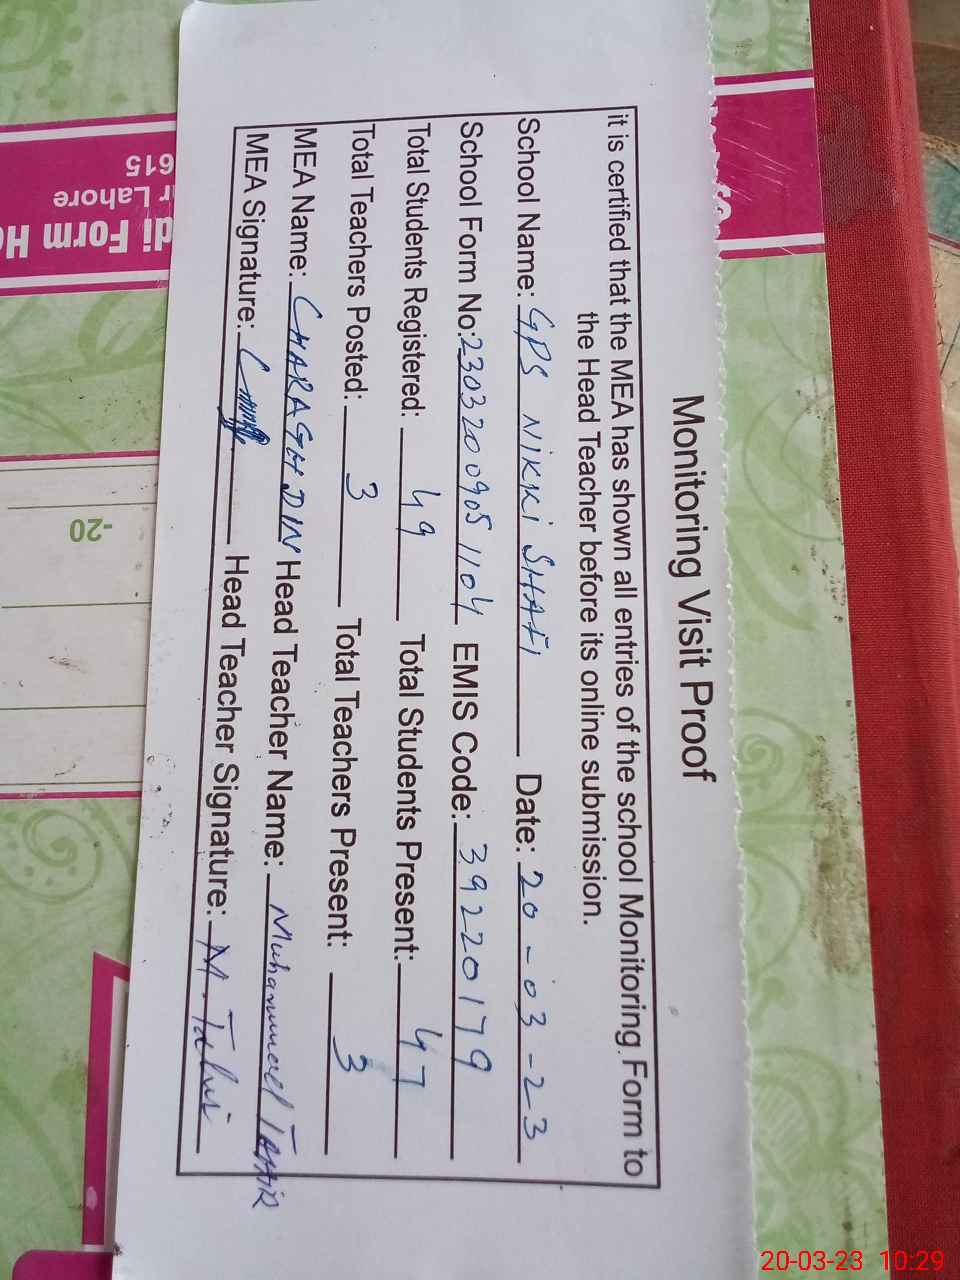 Monitoring Visit Proof
it is certified that the MEA has shown all entries of the school Monitoring Form to
the Head Teacher before its online submission.
School Name: GPS NIKKI SHAFI Date: 20-03-23
School Form No: 23032009051104 EMIS Code: 39220179
Total Students Registered: 49 Total Students Present: 47
Total Teachers Posted: 3 Total Teachers Present: 3
MEA Name: CHARAGH DIN Head Teacher Name: Muhammad TAHIR
MEA Signature: Head Teacher Signature: M. Tahir
615
r Lahore
di Form Ho
-20
20-03-23 10:29